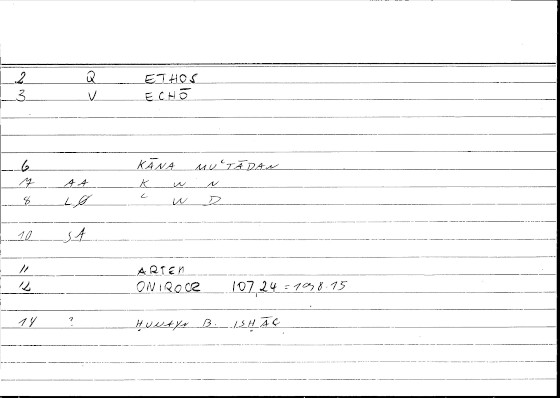 2 Q ETHOS
3 V ECHŌ
6 KĀNA MUʿTĀDAN
7 AA K W N
8 LØ ʿ W D
10 SA
11 ARTEM
12 ONIROCR 107,24 =
14 ? ḤUNAYN B. ISḤĀQ